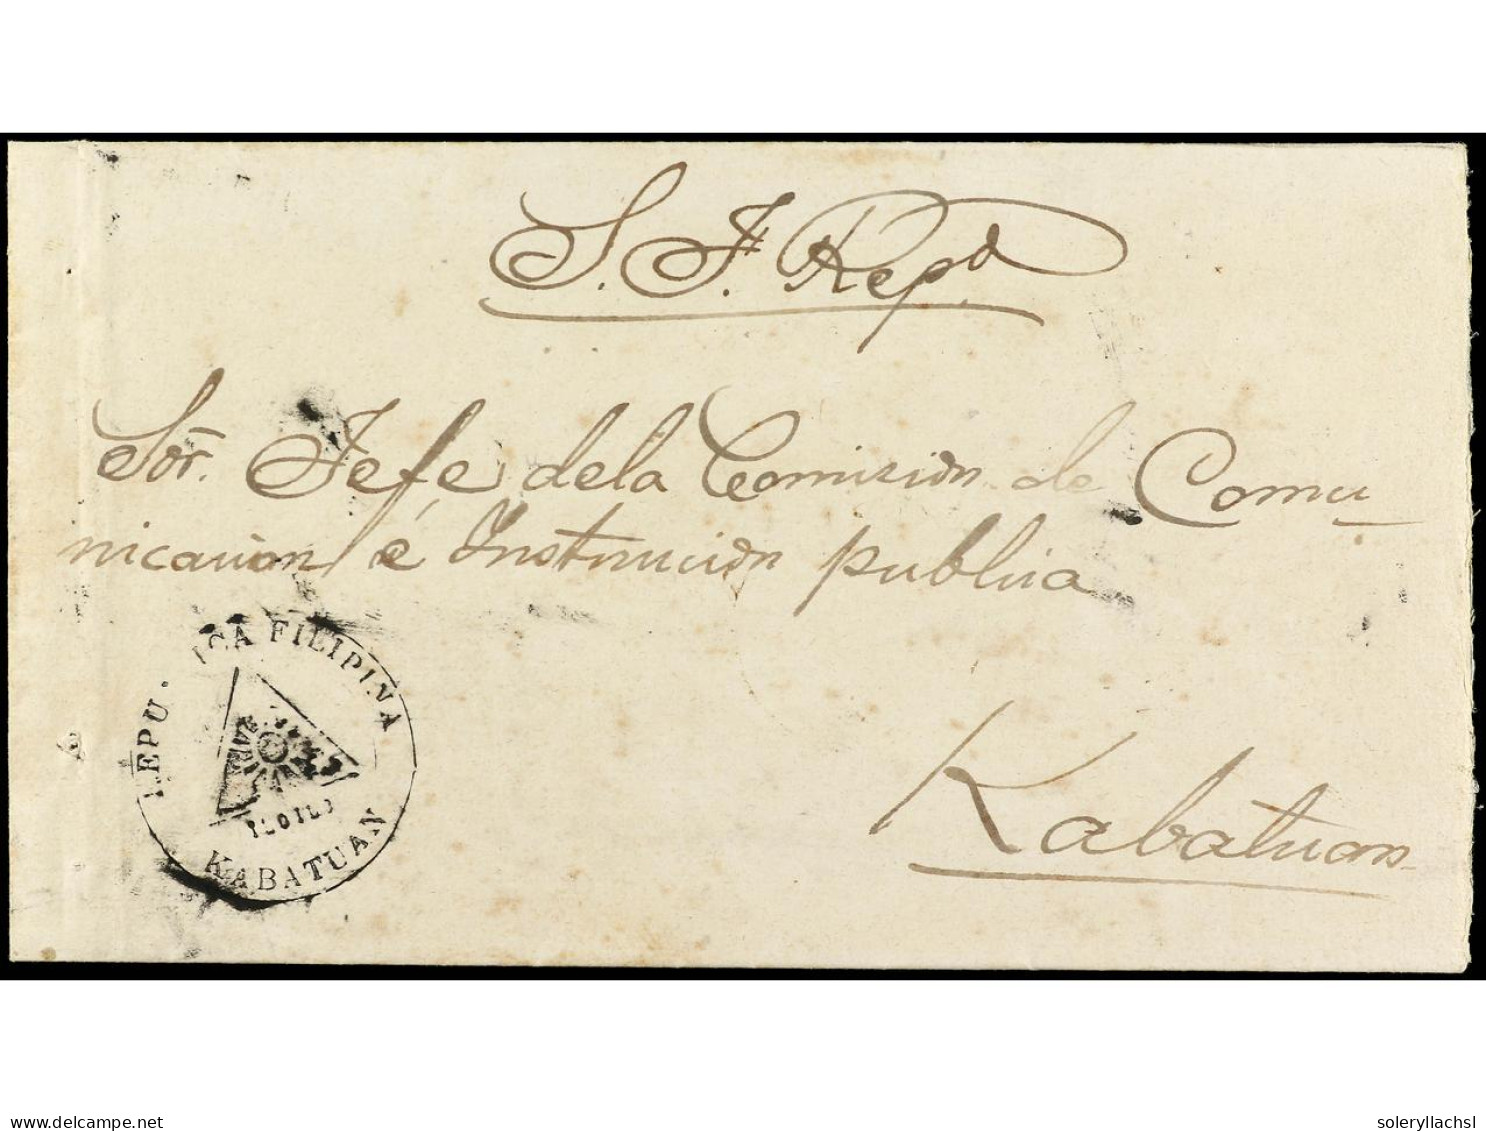 S. F. Repª
Sor. Jefe dela Comision de Comu-
nicacion é Instruccion publica
REPU. ICA FILIPINA
ILOILO
KABATUAN
Kabatuan
delcampe.net
soleryllachsl